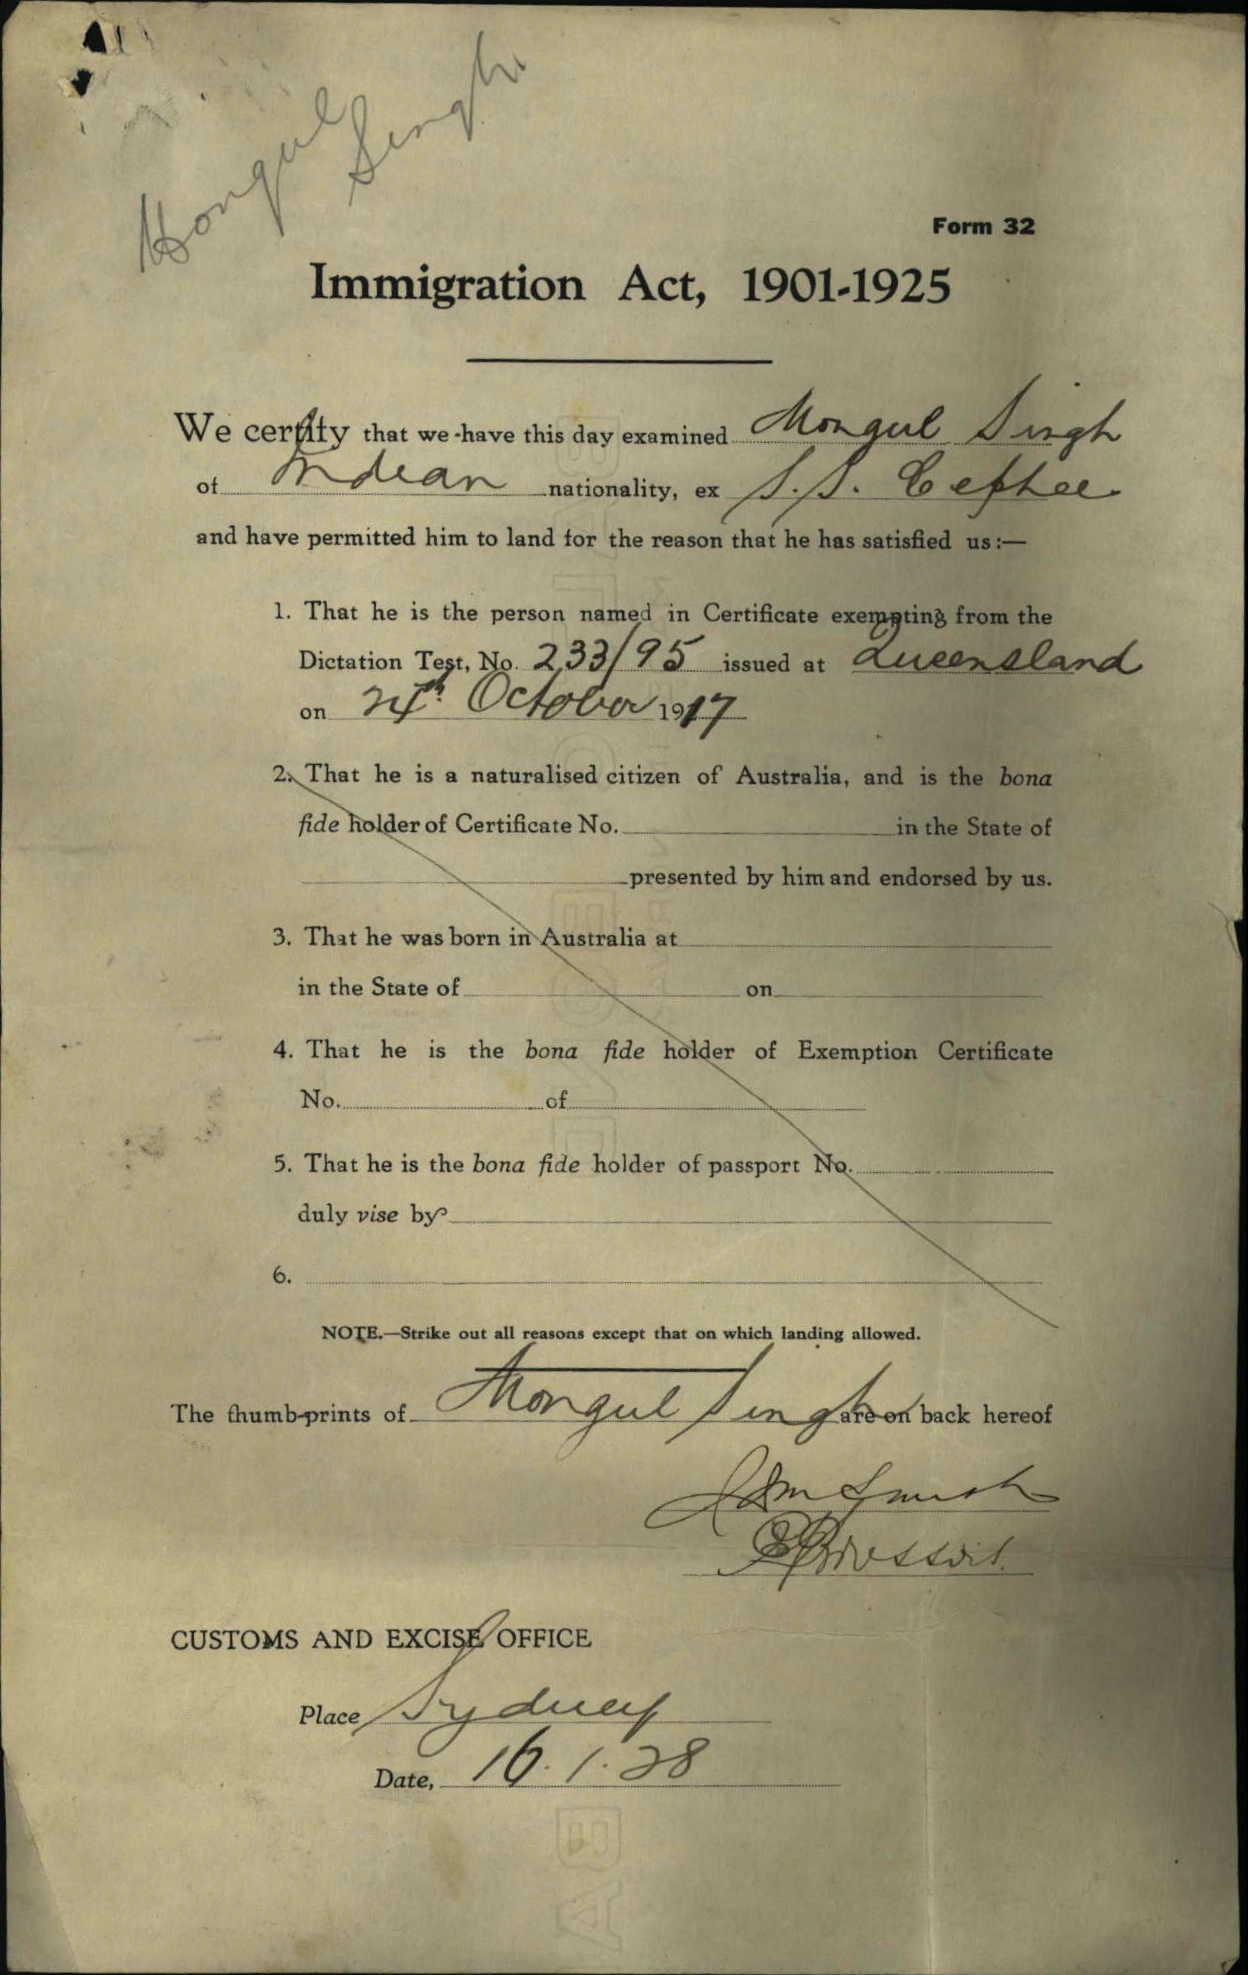 Mongul
Singh
Form 32
Immigration Act, 1901-1925
We certify that we have this day examined Mongul Singh
of Indian nationality, ex S.S. Cephee
and have permitted him to land for the reason that he has satisfied us:—
1. That he is the person named in Certificate exempting from the
Dictation Test, No. 233/95 issued at Queensland
on 24th October 1917
2. That he is a naturalised citizen of Australia, and is the bona
fide holder of Certificate No. in the State of
presented by him and endorsed by us.
3. That he was born in Australia at
in the State of on
4. That he is the bona fide holder of Exemption Certificate
No. of
5. That he is the bona fide holder of passport No.
duly vise by
6.
NOTE.—Strike out all reasons except that on which landing allowed.
The thumb-prints of Mongul Singh are on back hereof
CUSTOMS AND EXCISE OFFICE
Place Sydney
Date, 16.1.28